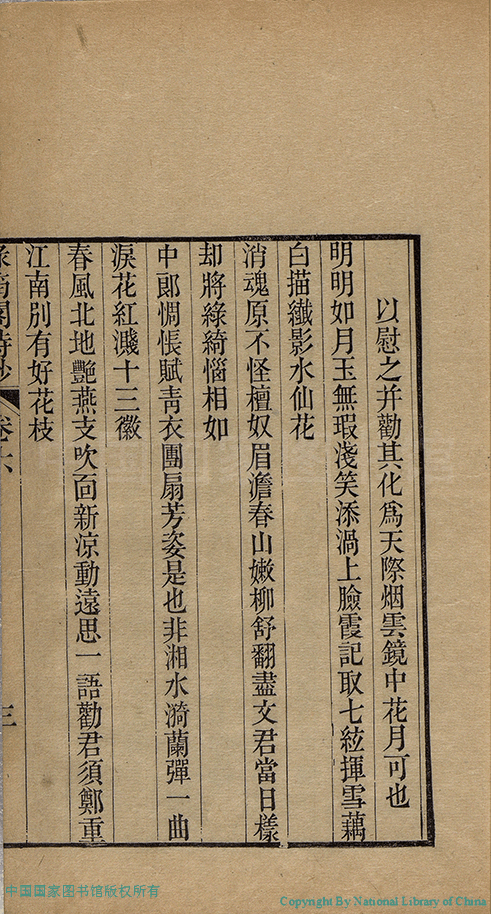 以慰之并勸其化爲天際烟雲鏡中花月可也
明明如月玉無瑕淺笑添渦上臉霞記取七絃揮雪藕
白描纖影水仙花
消魂原不怪檀奴眉澹春山嫩柳舒翻盡文君當日樣
却將綠綺惱相如
中郎惆悵賦靑衣團扇芳姿是也非湘水漪蘭彈一曲
淚花紅濺十三徽
春風北地豔燕支吹面新凉動遠思一語勸君須鄭重
江南別有好花枝
閣詩鈔 卷六 三
中国国家图书馆版权所有
Copyright By National Library of China